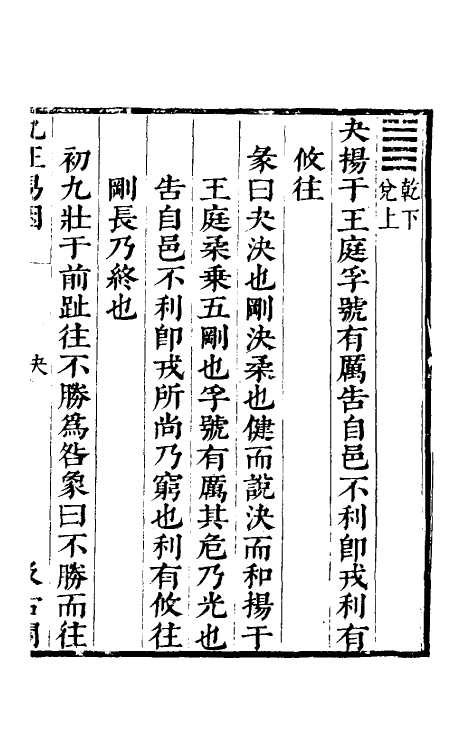 乾下
兌上
夬揚于王庭孚號有厲告自邑不利卽戎利有
攸往
彖曰夬決也剛決柔也健而說決而和揚于
王庭柔乘五剛也孚號有厲其危乃光也
告自邑不利卽戎所尚乃窮也利有攸往
剛長乃終也
初九壯于前趾往不勝爲咎象曰不勝而往
九正易因
夬